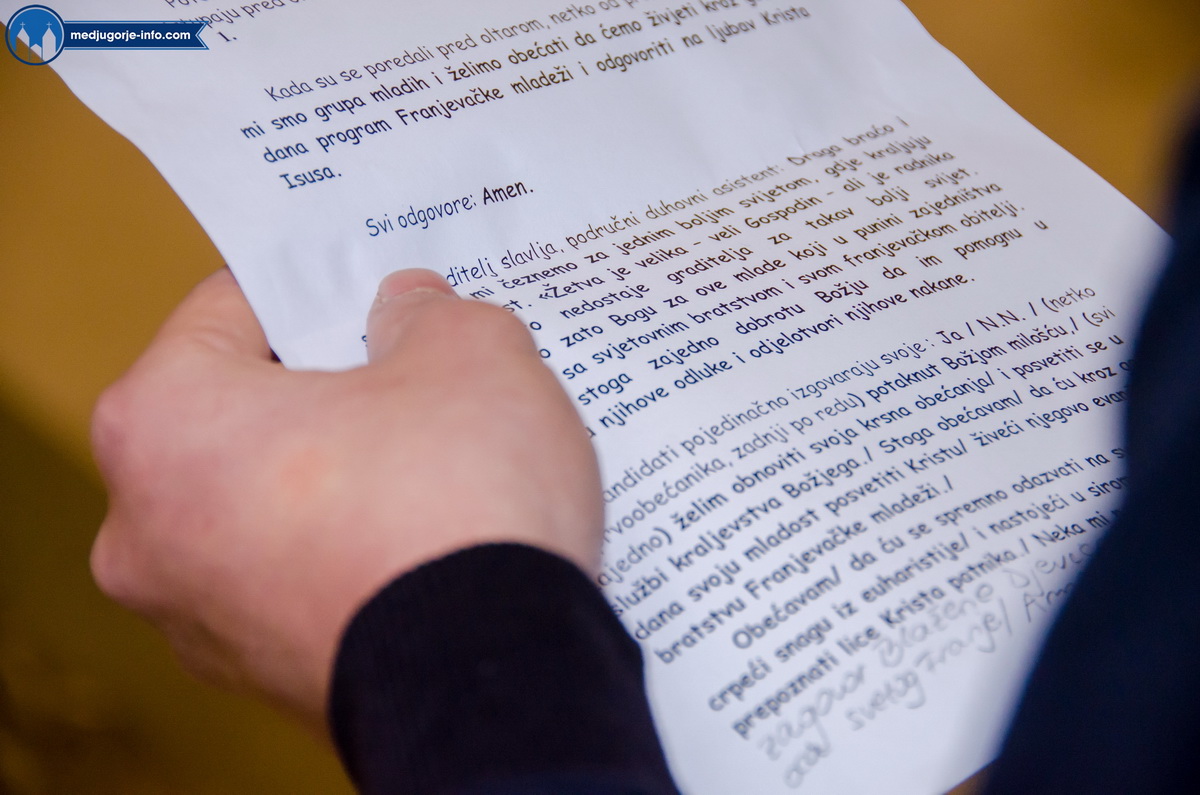 medjugorje-info.com
1.
Kada su se poredali pred oltarom, netko od
mi smo grupa mladih i želimo obećati da ćemo živjeti kroz
dana program Franjevačke mladeži i odgovoriti na ljubav Krista
Isusa.
Svi odgovore: Amen.
ditelj slavlja, područni duhovni asistent: Draga braćo i
mi čeznemo za jednim boljim svijetom, gdje kraljuju
st. «Žetva je velika - veli Gospodin - ali je radnika
o nedostaje graditelja za takav bolji svijet.
o zato Bogu za ove mlade koji u punini zajedništva
sa svjetovnim bratstvom i svom franjevačkom obitelji.
stoga zajedno dobrotu Božju da im pomognu u
njihove odluke i odjelotvori njihove nakane.
andidati pojedinačno izgovaraju svoje: Ja / N.N. / (netko
voobećanika, zadnji po redu) potaknut Božjom milošću / (svi
ajedno) želim obnoviti svoja krsna obećanja/ i posvetiti se u
službi kraljevstva Božjega./ Stoga obećavam/ da ću kroz
dana svoju mladost posvetiti Kristu/ živeći njegovo evan
bratstvu Franjevačke mladeži./
Obećavam/ da ću se spremno odazvati na
crpeći snagu iz euharistije/ i nastojeći u sirom
prepoznati lice Krista patnika./ Neka mi
zagovor Blažene Djevice
svetog Franje/ Am